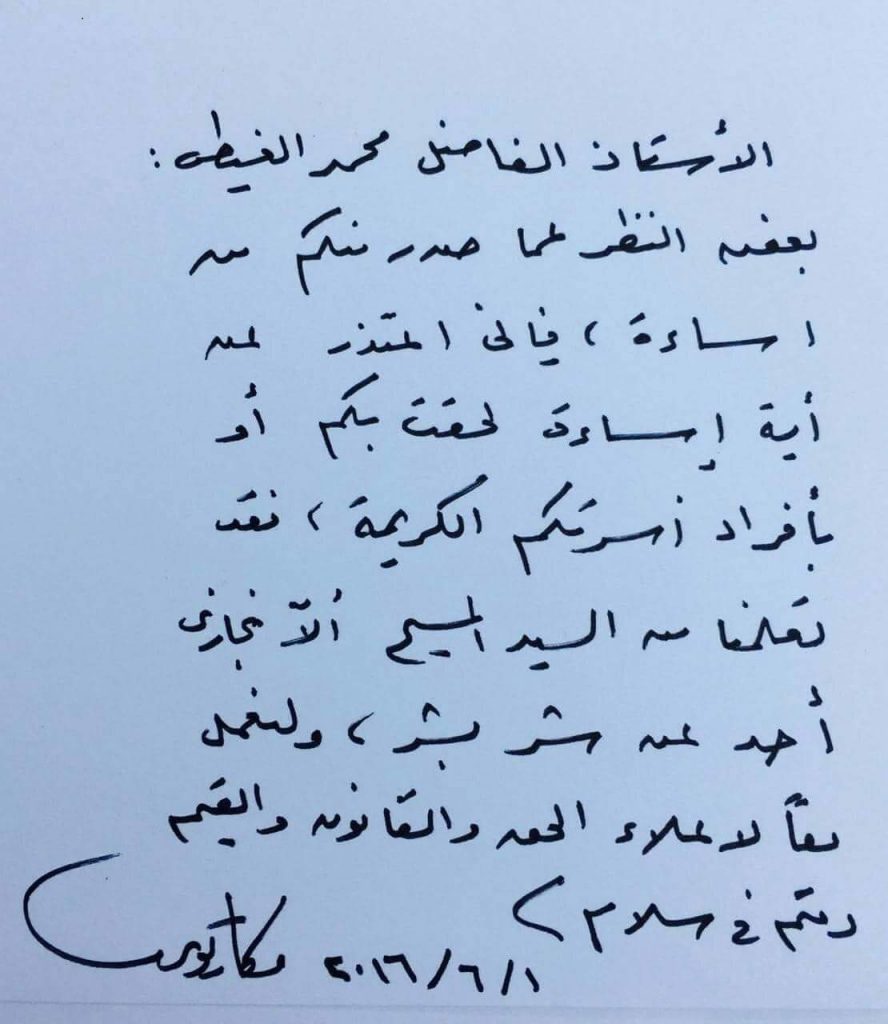 الأستاذ الفاضل محمد الغيطى :
بغض النظر عما صدر منكم من
اساءة ، فإنى اعتذر عن
أية إساءة لحقت بكم أو
بأفراد أسرتكم الكريمة ، فقد
تعلمنا من السيد المسيح ألاّ نجازى
أحد عن شر بشر ، ولنعمل
معاً لاعلاء الحق والقانون والقيم
دمتم فى سلام
مكاريوس ٢٠١٦/٦/١